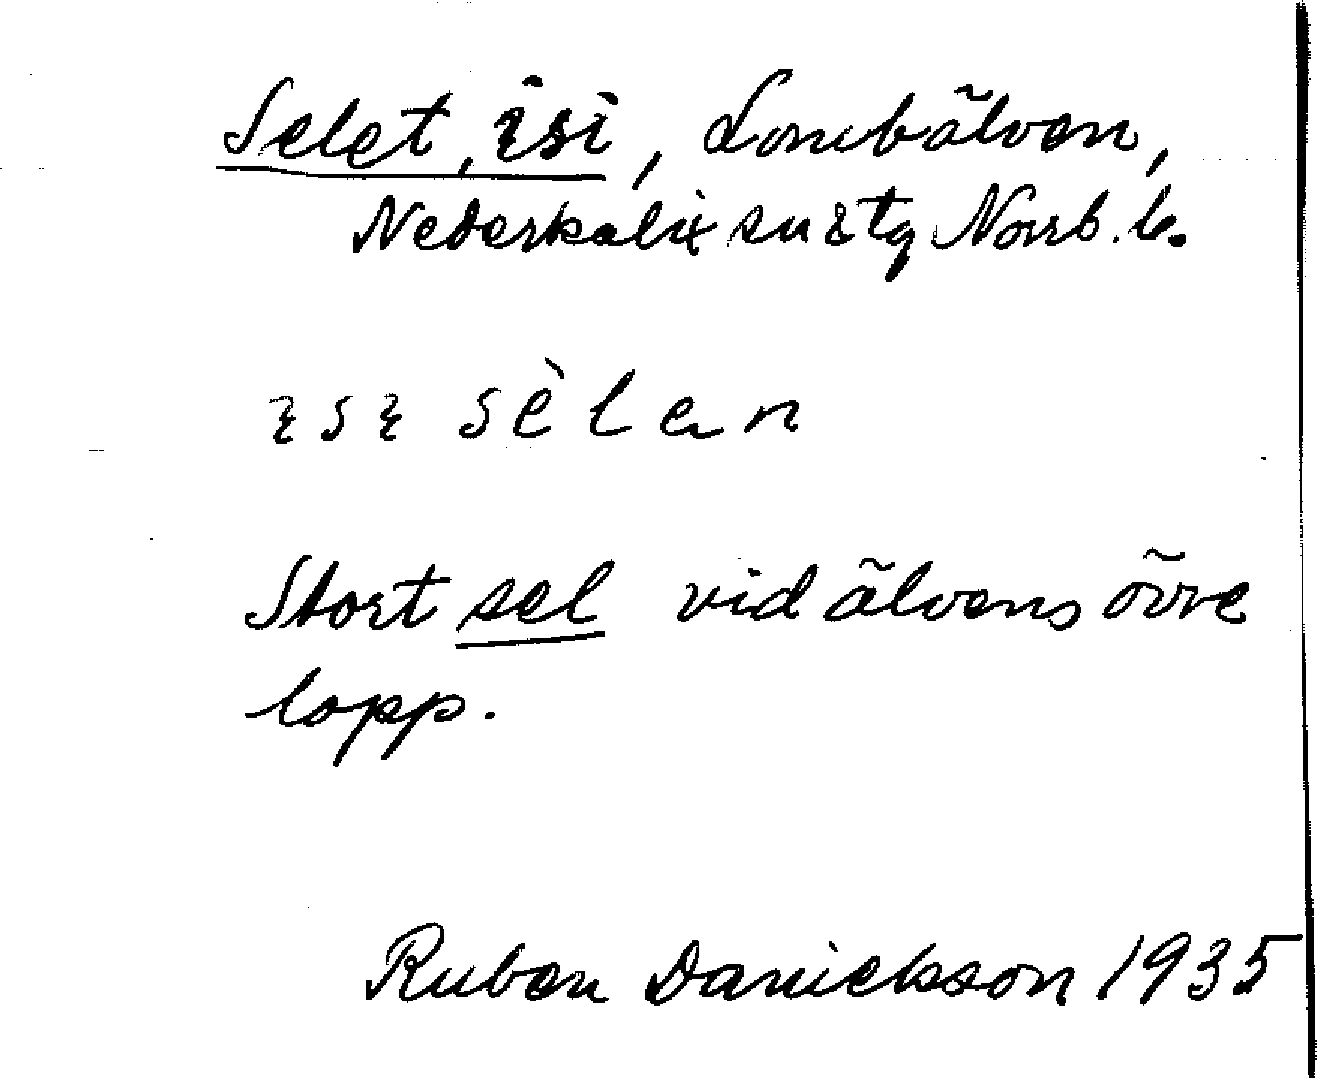 Selet, Isi, Lombälven,
Nederkalix sn & tg Norrb. l.
sèlen
Stort sel vid älvens övre
lopp.
Ruben Danielsson 1935